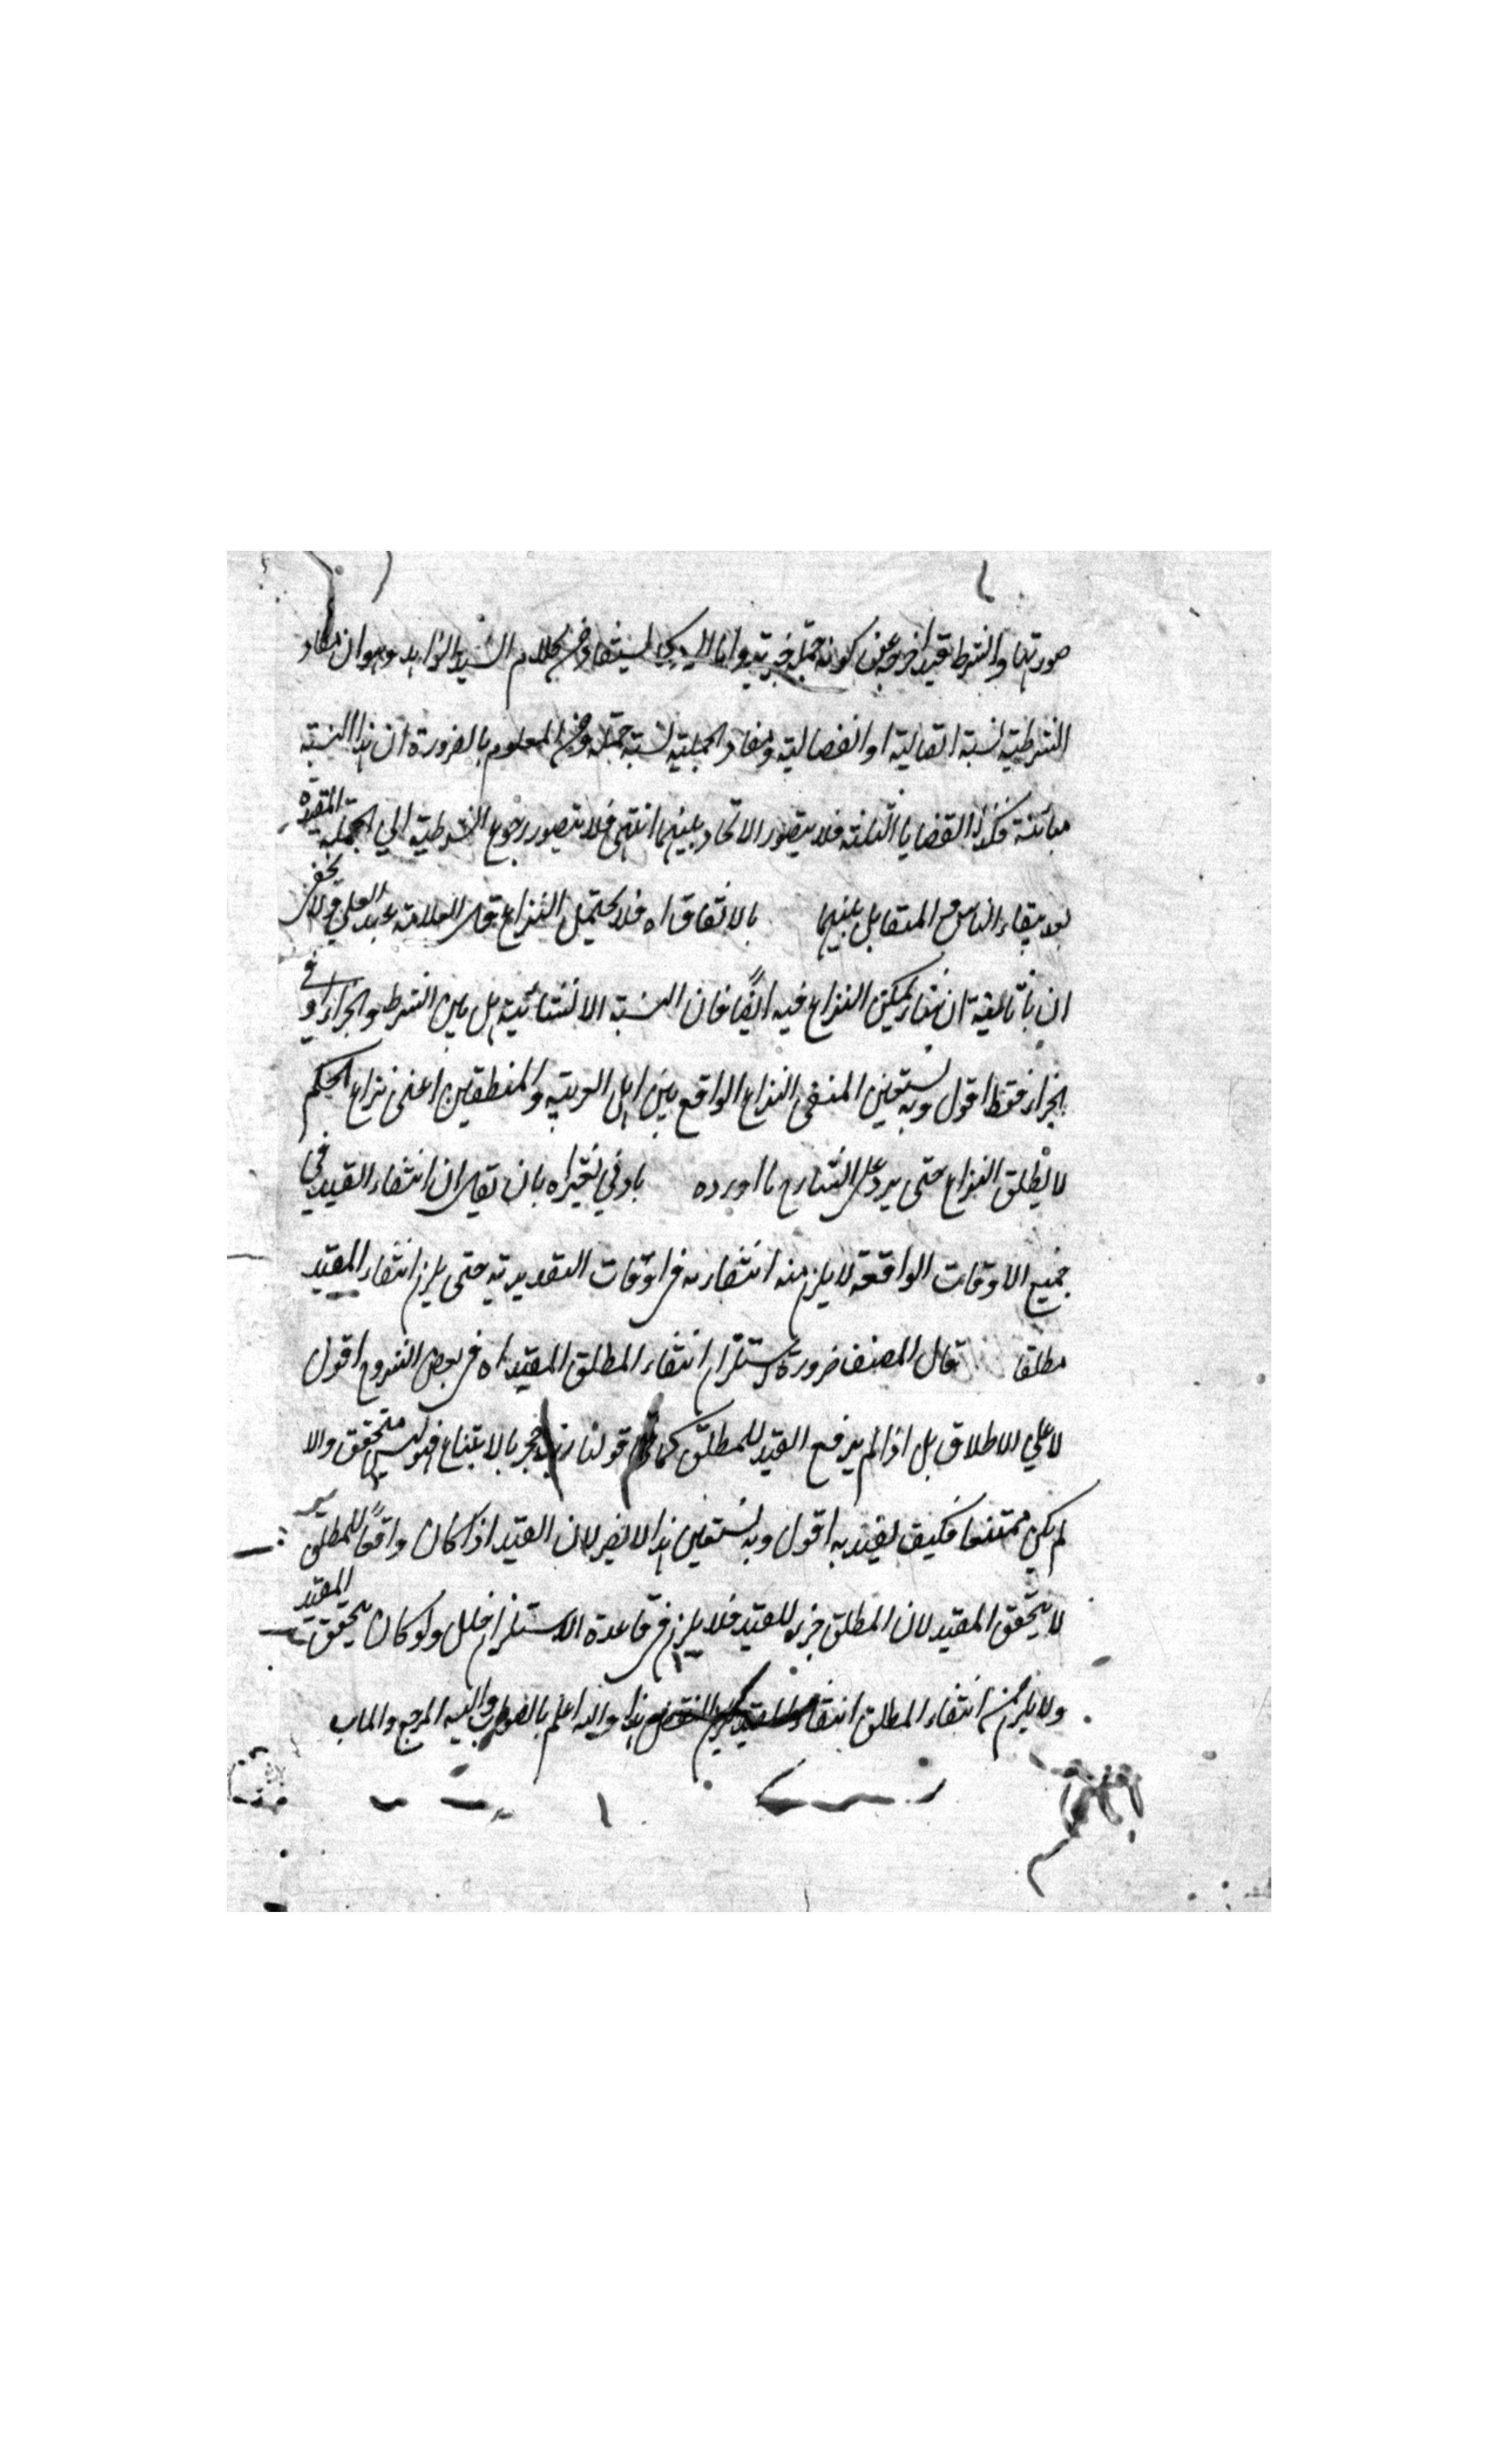 صورتها والشرط قيد اخرجه عن كونه جملة خبرية واما الـ يستفاد من كلام السيد الزاهد وهو ان مفاد
الشرطية نسبة اتصالية او انفصالية ومفاد الحملية نسبة حملية ومن المعلوم بالضرورة ان هذا النسبة
مباينة فكذا القضايا الثلثة فلا يتصور الاتحاد بينهما انتهى فلا يتصور رجوع الشرطية الي الحملية المقيدة
بقاء الناس مع المتقابل بينهما بالاتفاق اه فلا يحتمل النزاع قال العلامة عبد العلي
ان يمكن النزاع فيه ايضًا فان النسبة الانشائية هل بين الشرط والجزاء او في
الجزاء فقط اقول وبه نستعين المنفي النزاع الواقع بين اهل العربية والمنطقين اعني نزاع الحكم
لا مطلق النزاع حتى يرد على الشارح ما اورده بادني تغير اه بان يقال ان انتفاء القيد في
جميع الاوقات الواقعة لا يلزم منه انتفاءه في اوقات التقديرية حتى يلزم انتفاء المقيد
مطلقا قال المصنف ضرورة استلزام انتفاء المطلق المقيد اه في بعض الشروح اقول
لا على الاطلاق بل اذا لم يرفع القيد للمطلق كما قولنا زيد حجر بالامتناع فهو ليس متحقق والا
لم يكن ممتنعا فكيف يقيد به اقول وبه نستعين هذا لا يضر لان القيد اذا كان رافعًا للمطلق
لا يتحقق المقيد لان المطلق جزء للمقيد فلا يلزم في قاعدة الاستلزام خلل ولو كان يتحقق المقيد
ولا يلزم من انتفاء المطلق انتفاء هذا والله اعلم بالصواب واليه المرجع والماب